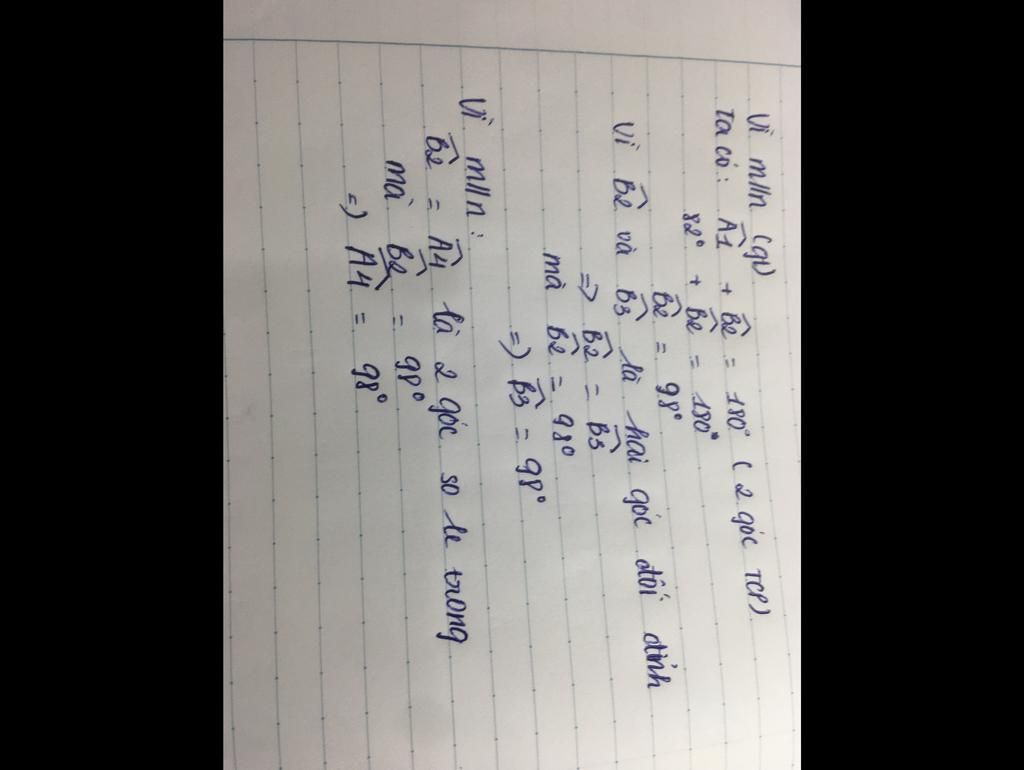 Vì m//n (gt)
Ta có: Â1 + B̂2 = 180° (2 góc TCP)
82° + B̂2 = 180°
B̂2 = 98°
Vì B̂2 và B̂3 là hai góc đối đỉnh
=> B̂2 = B̂3
mà B̂2 = 98°
=> B̂3 = 98°
Vì m//n:
B̂2 = Â4 là 2 góc so le trong
mà B̂2 = 98°
=> Â4 = 98°